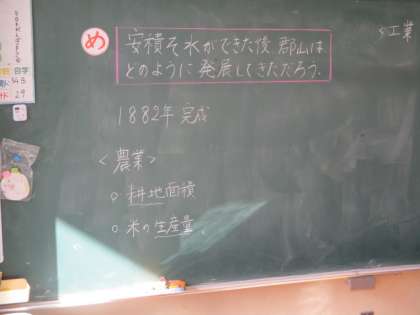 め
安積そ水ができた後 郡山は
どのように発展してきただろう。
1882年 完成
<農業>
○ 耕地面積
○ 米の生産量
工業